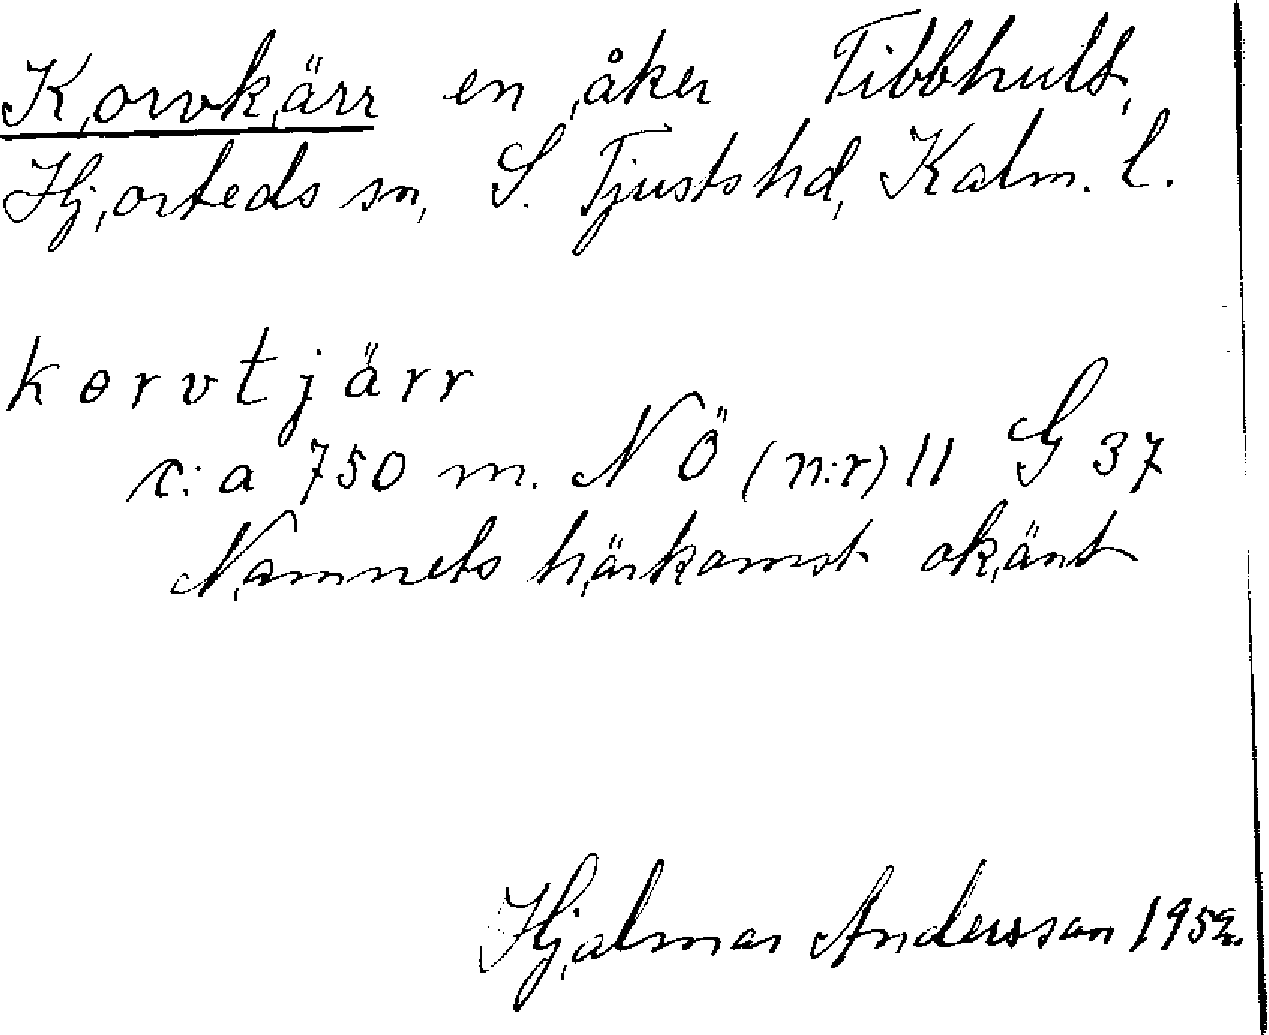 Korvkärr en åker Tibbhult,
Hjorteds sn, S. Tjusts hd, Kalm. l.
korvtjärr
c:a 750 m. NÖ (n:r) 11 G 37
Namnets härkomst okänt
Hjalmar Andersson